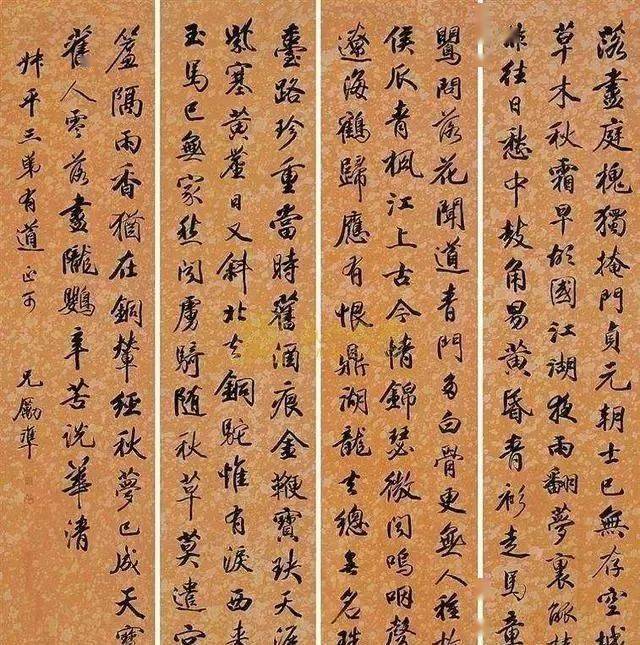 落盡庭槐獨掩門貞元朝士已無存空城
草木秋霜早故國江湖夜雨翻夢裏觚
非往日愁中鼓角易黃昏青衫走馬章
鸎閒落花聞道青門多白骨更無人種故
侯瓜青楓江上古今情錦瑟微聞嗚咽聲
遼海鶴歸應有恨鼎湖龍去總無名珠
臺路珍重當時舊酒痕金鞭寶玦天涯
紫塞黃雲日又斜北去銅駝惟有淚西來
玉馬已無家愁聞虜騎隨秋草莫遣宮
簾隔雨香猶在銅輦經秋夢已成天寶
舊人零落盡隴鸚辛苦說華清
叔平三弟有道正可
兄勵準